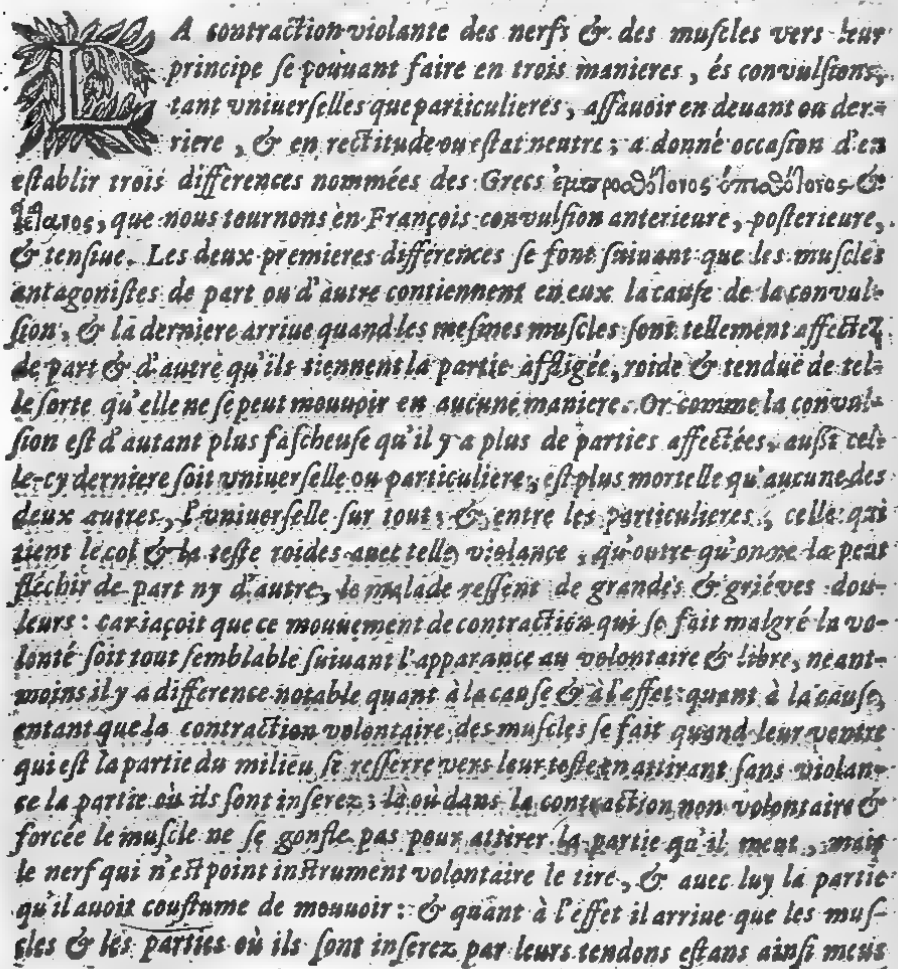 LA contraction violante des nerfs & des muſcles vers leur
principe ſe pouuant faire en trois manieres, és convulſions,
tant vniuerſelles que particulieres, aſſauoir en deuant ou der-
riere, & en rectitude ou eſtat neutre; a donné occaſion d'en
eſtablir trois differences nommées des Grecs ἐμπροσθότονος ὀπισθότονος &
τέτανος, que nous tournons en François convulſion anterieure, poſterieure,
& tenſiue. Les deux premieres differences ſe font ſuiuant que les muſcles
antagoniſtes de part ou d'autre contiennent en eux la cauſe de la convul-
ſion, & la derniere arriue quand les meſmes muſcles ſont tellement affectez
de part & d'autre qu'ils tiennent la partie affligée, roide & tenduë de tel-
le ſorte qu'elle ne ſe peut mouuoir en aucune maniere. Or comme la convul-
ſion eſt d'autant plus faſcheuſe qu'il y a plus de parties affectées, auſſi cel-
le-cy derniere ſoit vniuerſelle ou particuliere, eſt plus mortelle qu'aucune des
deux autres, l'vniuerſelle ſur tout; & entre les particulieres, celle qui
tient le col & la teſte roides auec telle violance, qu'outre qu'on ne la peut
fléchir de part ny d'autre, le malade reſſent de grandes & griéves dou-
leurs: car iaçoit que ce mouuement de contraction qui ſe fait malgré la vo-
lonté ſoit tout ſemblable ſuiuant l'apparance au volontaire & libre, neant-
moins il y a difference notable quant à la cauſe & à l'effet: quant à la cauſe,
entant que la contraction volontaire des muſcles ſe fait quand leur ventre
qui eſt la partie du milieu ſe reſſerre vers leur teſte en attirant ſans violan-
ce la partie où ils ſont inſerez; là où dans la contraction non volontaire &
forcée le muſcle ne ſe gonfle pas pour attirer la partie qu'il meut, mais
le nerf qui n'eſt point inſtrument volontaire le tire, & auec luy la partie
qu'il auoit couſtume de mouuoir: & quant à l'effet il arriue que les muſ-
cles & les parties où ils ſont inſerez par leurs tendons eſtans ainſi meus